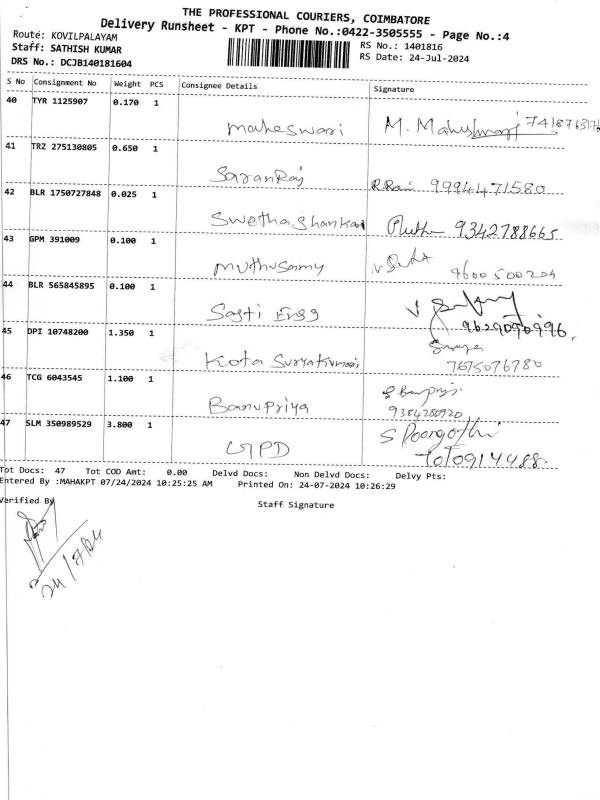 THE PROFESSIONAL COURIERS, COIMBATORE
Delivery Runsheet - KPT - Phone No.:0422-3505555 - Page No.:4
Route: KOVILPALAYAM
RS No.: 1401816
Staff: SATHISH KUMAR
RS Date: 24-Jul-2024
DRS No.: DCJB140181604
S No Consignment No Weight PCS Consignee Details Signature
40 TYR 1125907 0.170 1
Maheswari M. Maheshwari
41 TRZ 275130805 0.650 1
SaranRaj 9994471580
42 BLR 1750727848 0.025 1
Swethashankar 9342788665
43 GPM 391009 0.100 1
Muthusamy 9600500204
44 BLR 565845895 0.100 1
Sasti Engg 9629090996.
45 DPI 10748200 1.350 1
Kota Suryakumari 7675076780
46 TCG 6043545 1.100 1
Banupriya 9384280920
47 SLM 350989529 3.800 1
S Poorgothi
GPD
Tot Docs: 47 Tot COD Amt: 0.00 Delvd Docs: Non Delvd Docs: Delvy Pts:
Entered By :MAHAKPT 07/24/2024 10:25:25 AM Printed On: 24-07-2024 10:26:29
Verified By Staff Signature
24/7/24